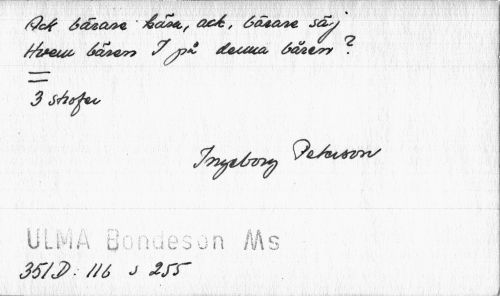 Ack bärare kära, ack, bärare säj
Hvem bären I på denna bären?
3 strofer
Ingeborg Peterson
ULMA Bondeson Ms
351 D: 116 s 255